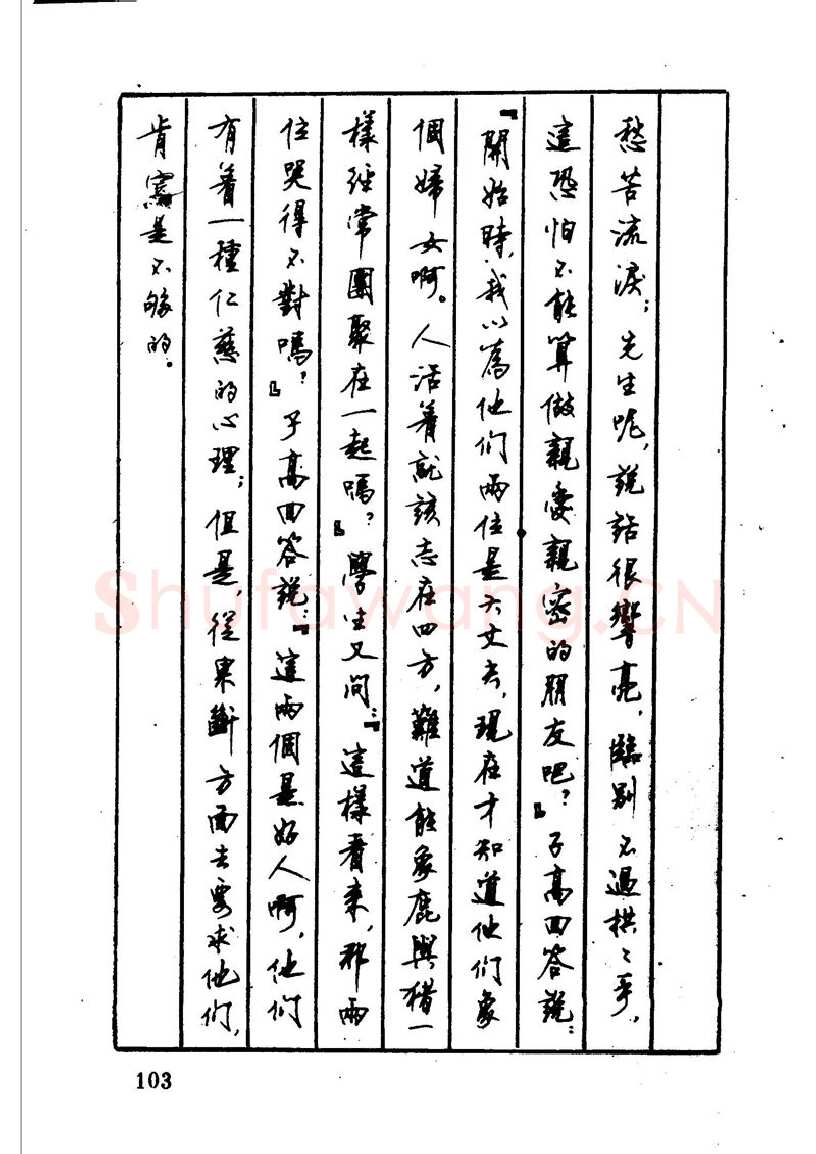 愁苦流淚；先生呢，説話很響亮，臨别不過拱々手，
這恐怕不能算做親愛親密的朋友吧？』子高回答説：
『開始時，我以爲他们兩位是大丈夫，現在才知道他们象
個婦女啊。人活着就該志在四方，難道能象鹿與猪一
樣經常團聚在一起嗎？』學生又問：『這樣看来，那兩
位哭得不對嗎？』子高回答説：『這兩個是好人啊，他们
有着一種仁慈的心理；但是，從果斷方面去要求他们，
肯定是不够的。
103
Shufawang.CN